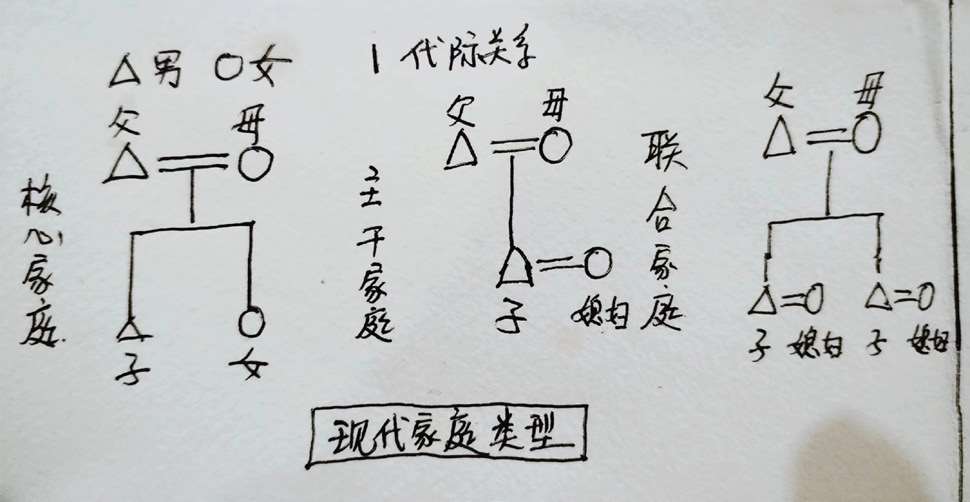 △男 ○女
| 代际关系
父 母
核心家庭
子 女
父 母
主干家庭
子 媳妇
父 母
联合家庭
子 媳妇 子 媳妇
现代家庭类型